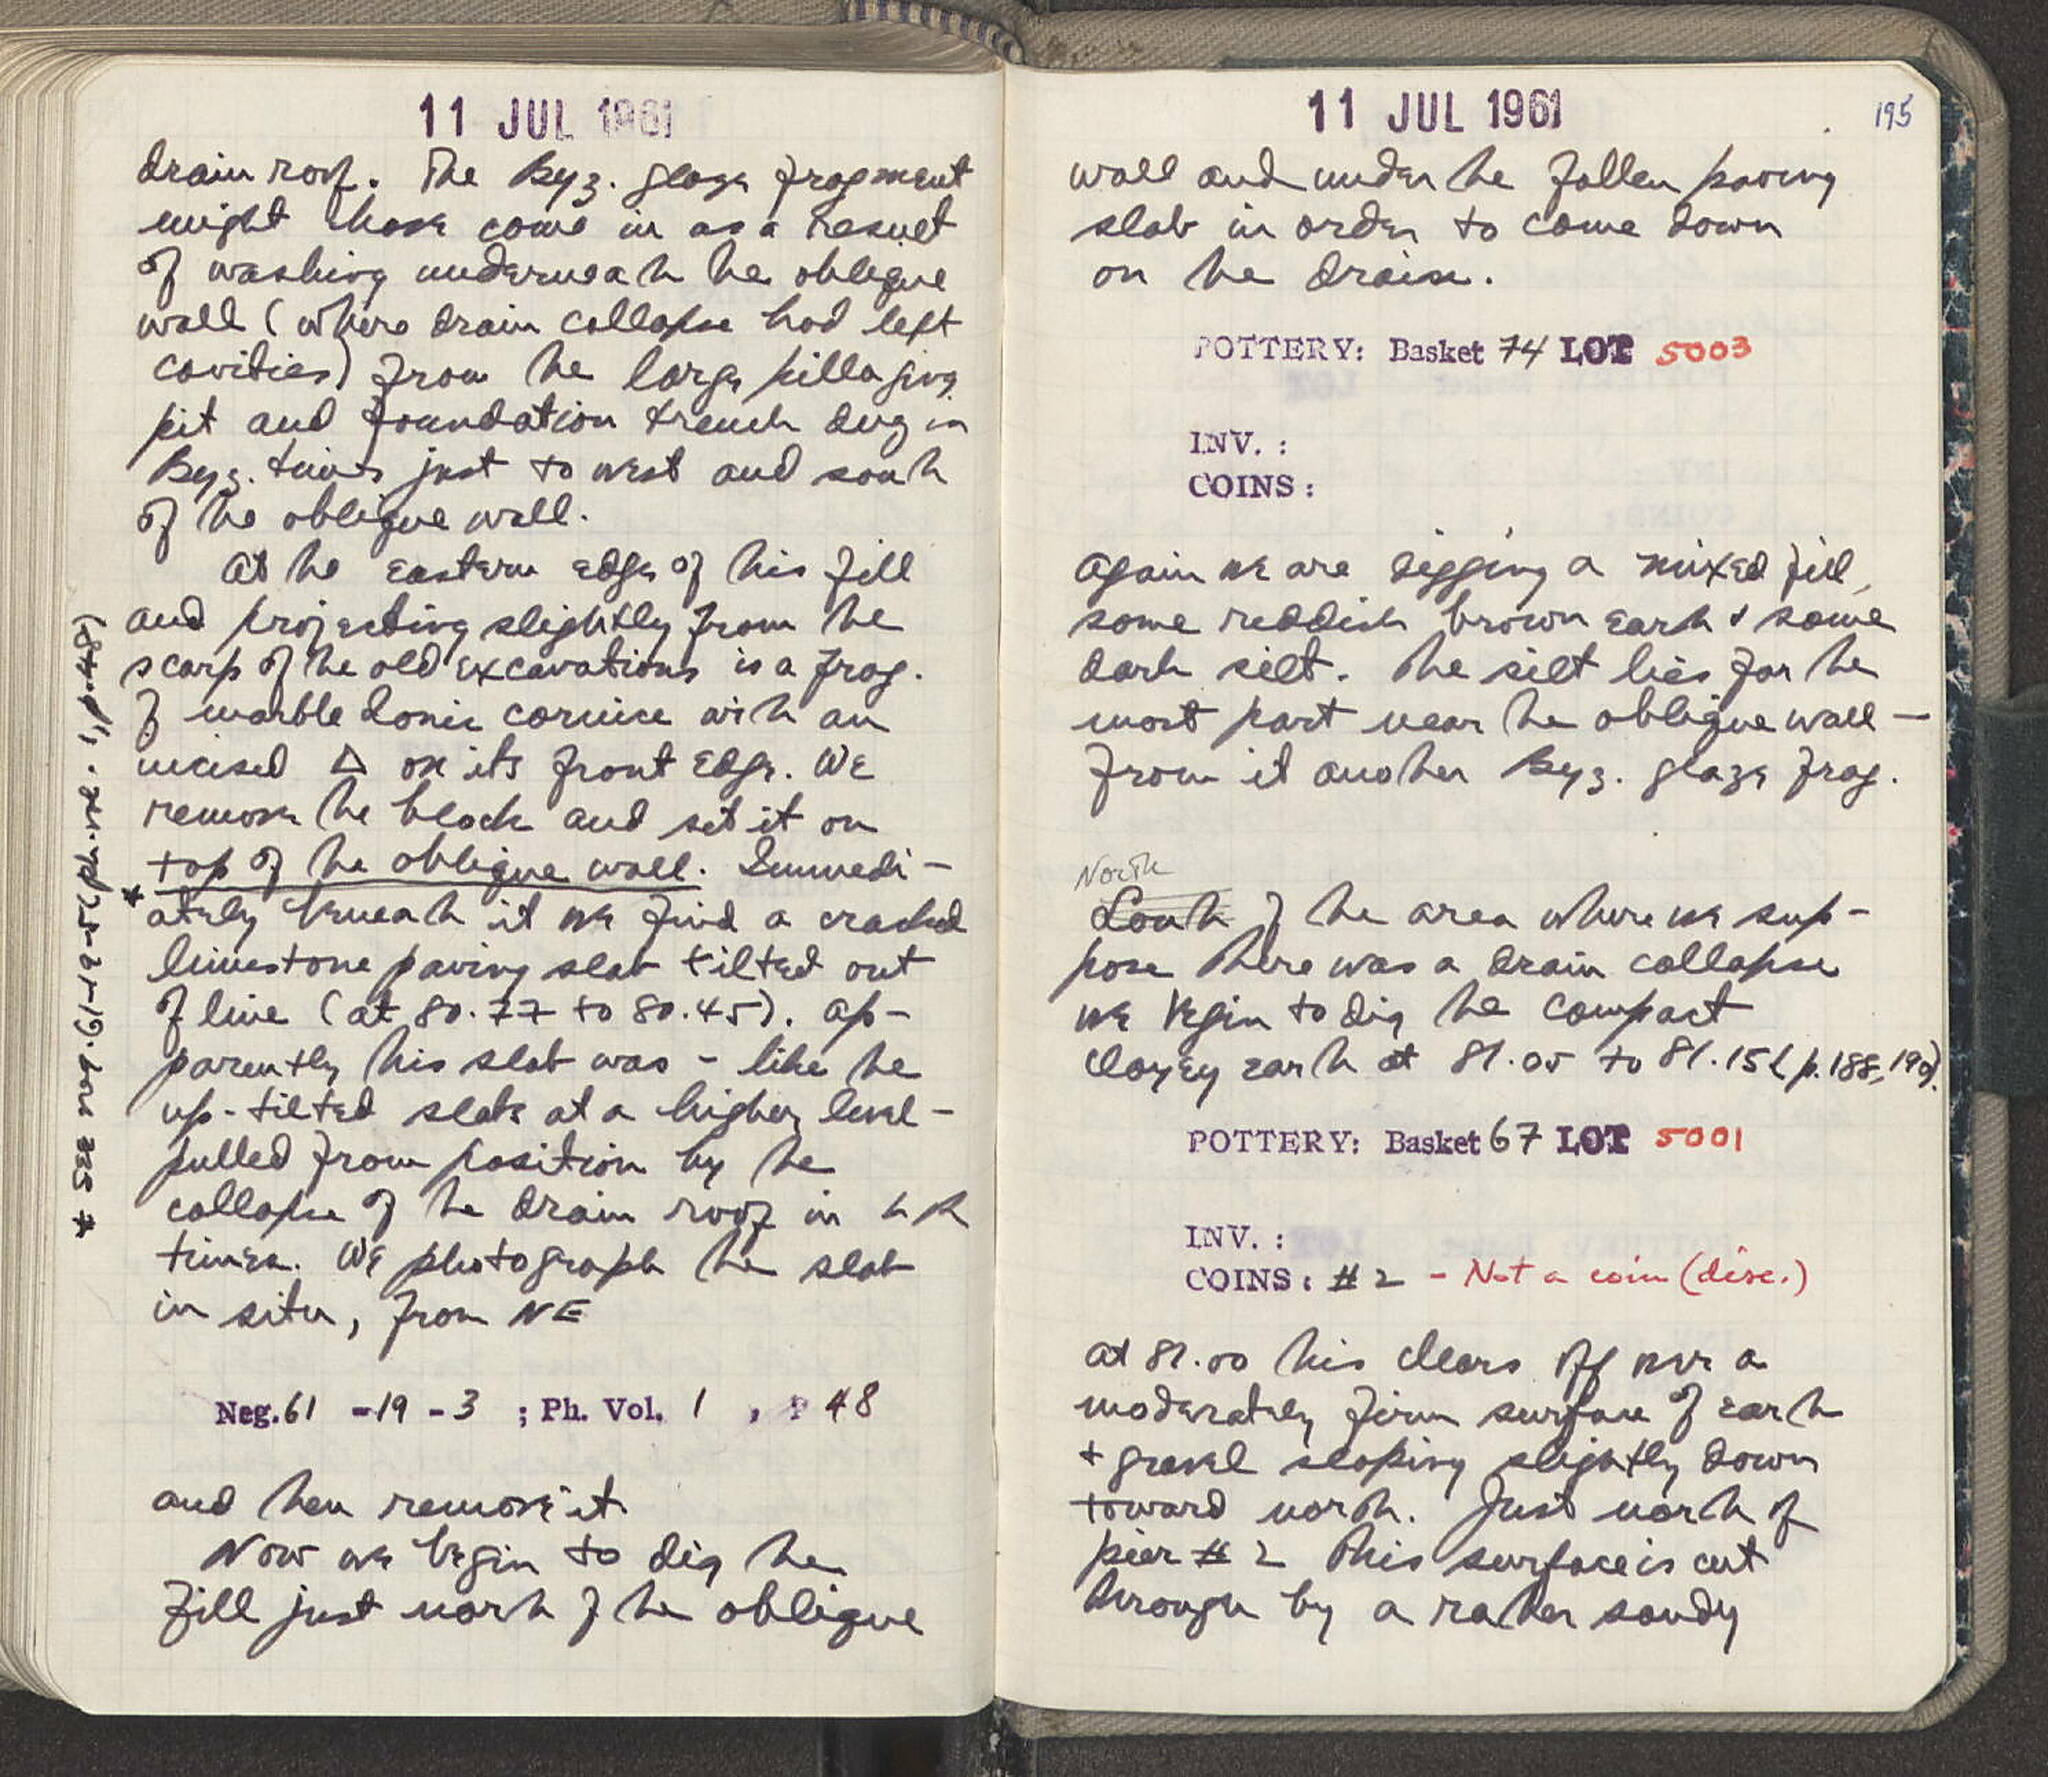 11 JUL 1961
drain roof. The Byz. glaze fragment
might have come in as a result
of washing underneath the oblique
wall (where drain collapse had left
cavities) from the large pillaging
pit and foundation trench dug in
Byz. times just to west and south
of the oblique wall.
At the eastern edge of this fill
and projecting slightly from the
scarp of the old excavations is a frag.
of marble Ionic cornice with an
incised Δ on its front edge. We
remove the block and set it on
top of the oblique wall. Immedi-
* ately beneath it we find a cracked
limestone paving slab tilted out
of line (at 80.77 to 80.45). Ap-
parently this slab was - like the
up-tilted slabs at a higher level -
pulled from position by the
collapse of the drain roof in LR
times. We photograph the slab
in situ, from NE
Neg. 61 -19 -3 ; Ph. Vol. 1 , P 48
and then remove it.
Now we begin to dig the
fill just north of the oblique
11 JUL 1961
195
wall and under the fallen paving
slab in order to come down
on the drain.
POTTERY: Basket 74 LOT 5003
INV. :
COINS :
Again we are digging a mixed fill,
some reddish brown earth & some
dark silt. The silt lies for the
most part near the oblique wall -
from it another Byz. glaze frag.
North
South of the area where we sup-
pose there was a drain collapse
we begin to dig the compact
clayey earth at 81.05 to 81.15 (p. 188, 190).
POTTERY: Basket 67 LOT 5001
INV. :
COINS : #2 - Not a coin (disc.)
At 81.00 this clears off over a
moderately firm surface of earth
+ gravel sloping slightly down
toward north. Just north of
pier # 2 this surface is cut
through by a rather sandy